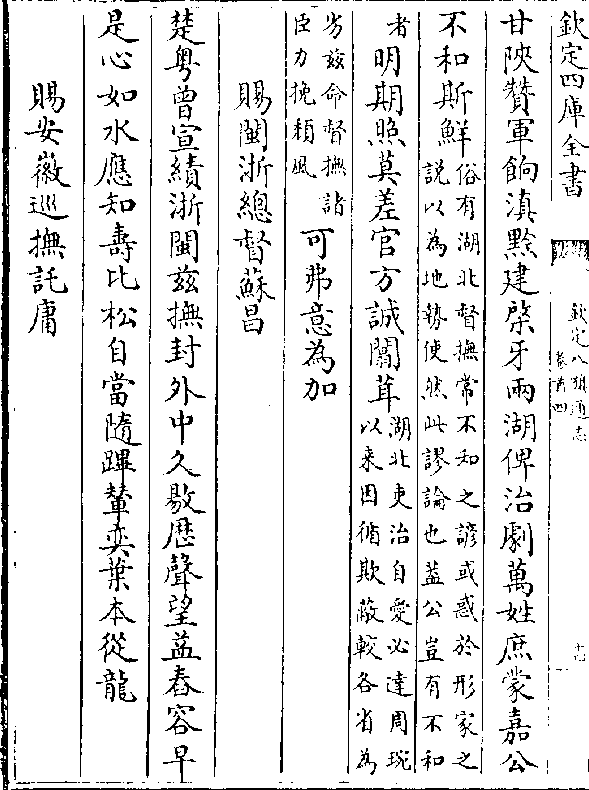 欽定四庫全書
欽定八旗通志
卷首四
十六
甘陜贊軍餉滇黔建棨牙兩湖俾治劇萬姓庶蒙嘉公
不和斯鮮俗有湖北督撫常不和之諺或惑於形家之
説以為地勢使然此謬論也蓋公豈有不和
者明期照莫差官方誠闒茸湖北吏治自愛必達周琬
以来因循欺蔽較各省為
劣兹命督撫諸
臣力挽頽風可弗意為加
賜閩浙總督蘇昌
楚粤曾宣績浙閩兹撫封外中久敭歴聲望益舂容早
是心如水應知壽比松自當隨蹕輦奕葉本從龍
賜安徽巡撫託庸